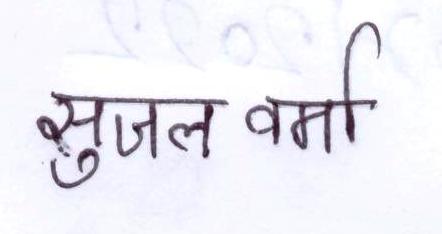 सुजल वर्मा